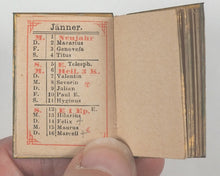 Jänner.
M. 1 Neujahr
D. 2 Macarius
F. 3 Genovefa
S. 4 Titus
S. 5 E. Telesph.
M. 6 Heil. 3 K.
D. 7 Valentin
M. 8 Severin
D. 9 Julian
F. 10 Paul E.
S. 11 Hyginus
S. 12 E 1 Ep. E.
M. 13 Hilarius
D. 14 Felix
M. 15 Maurus
D. 16 Marcell